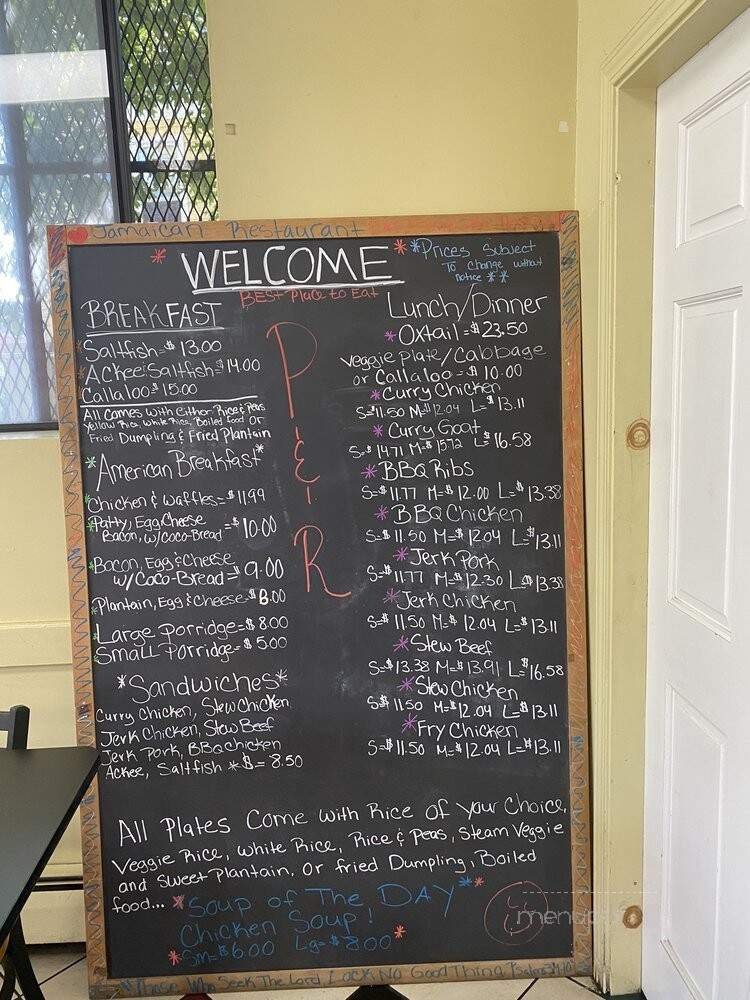 Jamaican Restaurant
* WELCOME *
*Prices Subject
To change without
notice **
BEST Place to Eat
BREAKFAST
Saltfish=$ 13.00
Ackee Saltfish=$ 14.00
Callaloo=$ 15.00
All comes with either Rice & Peas
Yellow Rice, White Rice, Boiled food or
Fried Dumpling & Fried Plantain
*American Breakfast*
Chicken & Waffles=$11.99
Patty, Egg, Cheese
Bacon, w/Coco-Bread =$ 10.00
*Bacon, Egg & Cheese
w/Coco-Bread=$ 9.00
*Plantain, Egg & Cheese=$ 8.00
Large Porridge=$ 8.00
Small Porridge=$ 5.00
*Sandwiches*
Curry Chicken, Stew Chicken,
Jerk Chicken, Stew Beef
Jerk Pork, BBQ Chicken
Ackee, Saltfish *$= 8.50
P
&
R
Lunch/Dinner
*Oxtail=$23.50
Veggie Plate/Cabbage
or Callaloo=$ 10.00
*Curry Chicken
S=$11.50 M=$12.04 L=$13.11
*Curry Goat
S=$14.71 M=$15.72 L=$16.58
*BBQ Ribs
S=$11.77 M=$12.00 L=$13.38
*BBQ Chicken
S=$11.50 M=$12.04 L=$13.11
*Jerk Pork
S=$11.77 M=$12.30 L=$13.38
*Jerk Chicken
S=$11.50 M=$12.04 L=$13.11
*Stew Beef
S=$13.38 M=$13.91 L=$16.58
*Stew Chicken
S=$11.50 M=$12.04 L=$13.11
*Fry Chicken
S=$11.50 M=$12.04 L=$13.11
All Plates Come with Rice of Your Choice,
Veggie Rice, White Rice, Rice & Peas, Steam Veggie
and Sweet Plantain, Or fried Dumpling, Boiled
food...
*Soup of The DAY**
Chicken Soup!
*Sm=$6.00 Lg=$8.00*
Those Who Seek The Lord Lack No Good Thing